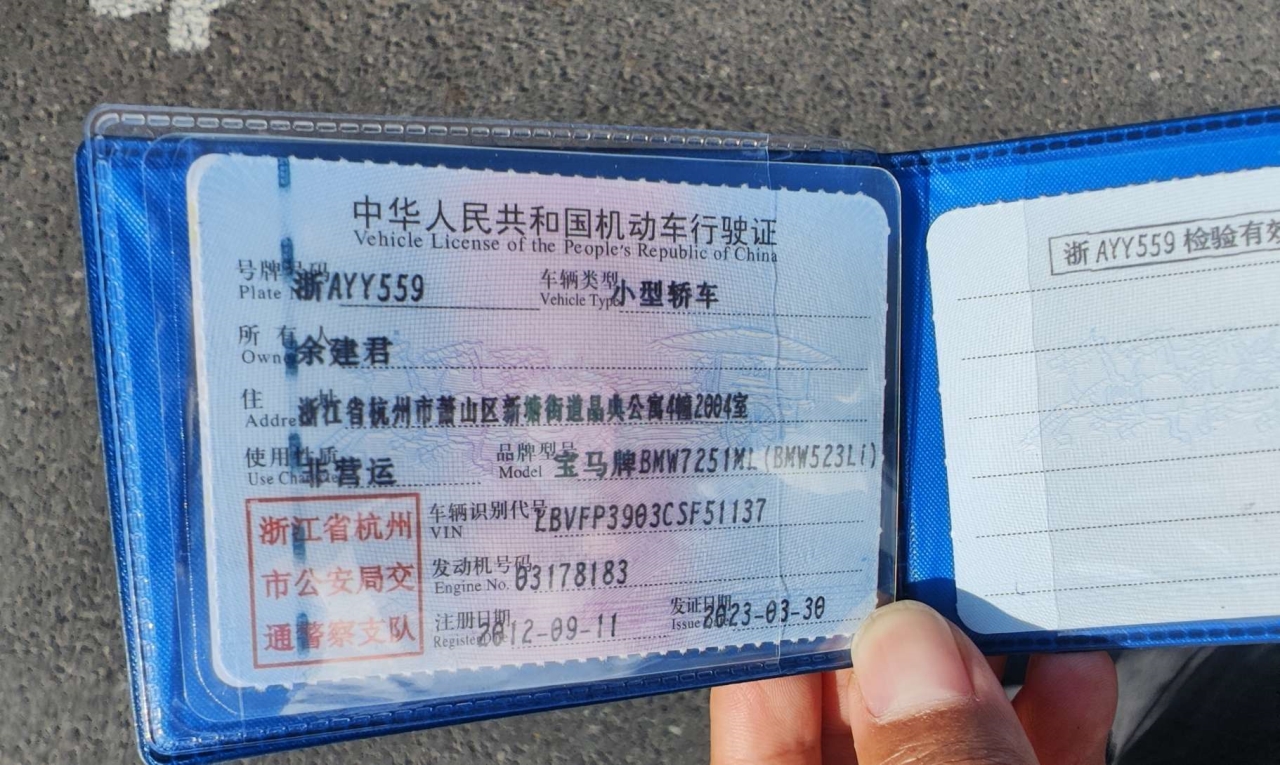 中华人民共和国机动车行驶证
Vehicle License of the People's Republic of China
号牌号码 浙AYY559 车辆类型 小型轿车
Plate N Vehicle Type
所 有 人 余建君
Owne
住 址 浙江省杭州市萧山区新塘街道晶典公寓4幢2004室
Addre
使用性质 非营运 品牌型号 宝马牌BMW7251ML(BMW523Li)
Use Chara Model
车辆识别代号 LBVFP3903CSF51137
VIN
发动机号码 03178183
Engine No.
注册日期 2012-09-11 发证日期 2023-03-30
Registe Issue
浙江省杭州
市公安局交
通警察支队
浙AYY559 检验有效